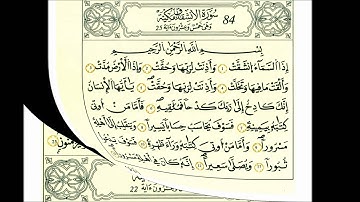 سورة الانشقاق مكية 84
وهي خمس وعشرون آية 25
بسم الله الرحمن الرحيم
إذا السماء انشقت ١ وأذنت لربها وحقت ٢ وإذا الأرض مدت ٣
وألقت ما فيها وتخلت ٤ وأذنت لربها وحقت ٥ يا أيها الإنسان
إنك كادح إلى ربك كدحا فملاقيه ٦ فأما من أوتي
كتابه بيمينه ٧ فسوف يحاسب حسابا يسيرا ٨ وينقلب إلى أهله
مسرورا ٩ وأما من أوتي كتابه وراء ظهره ١٠ فسوف يدعو
ثبورا ١١ ويصلى سعيرا ١٢ إنه كان في أهله
وعشرون آية 22